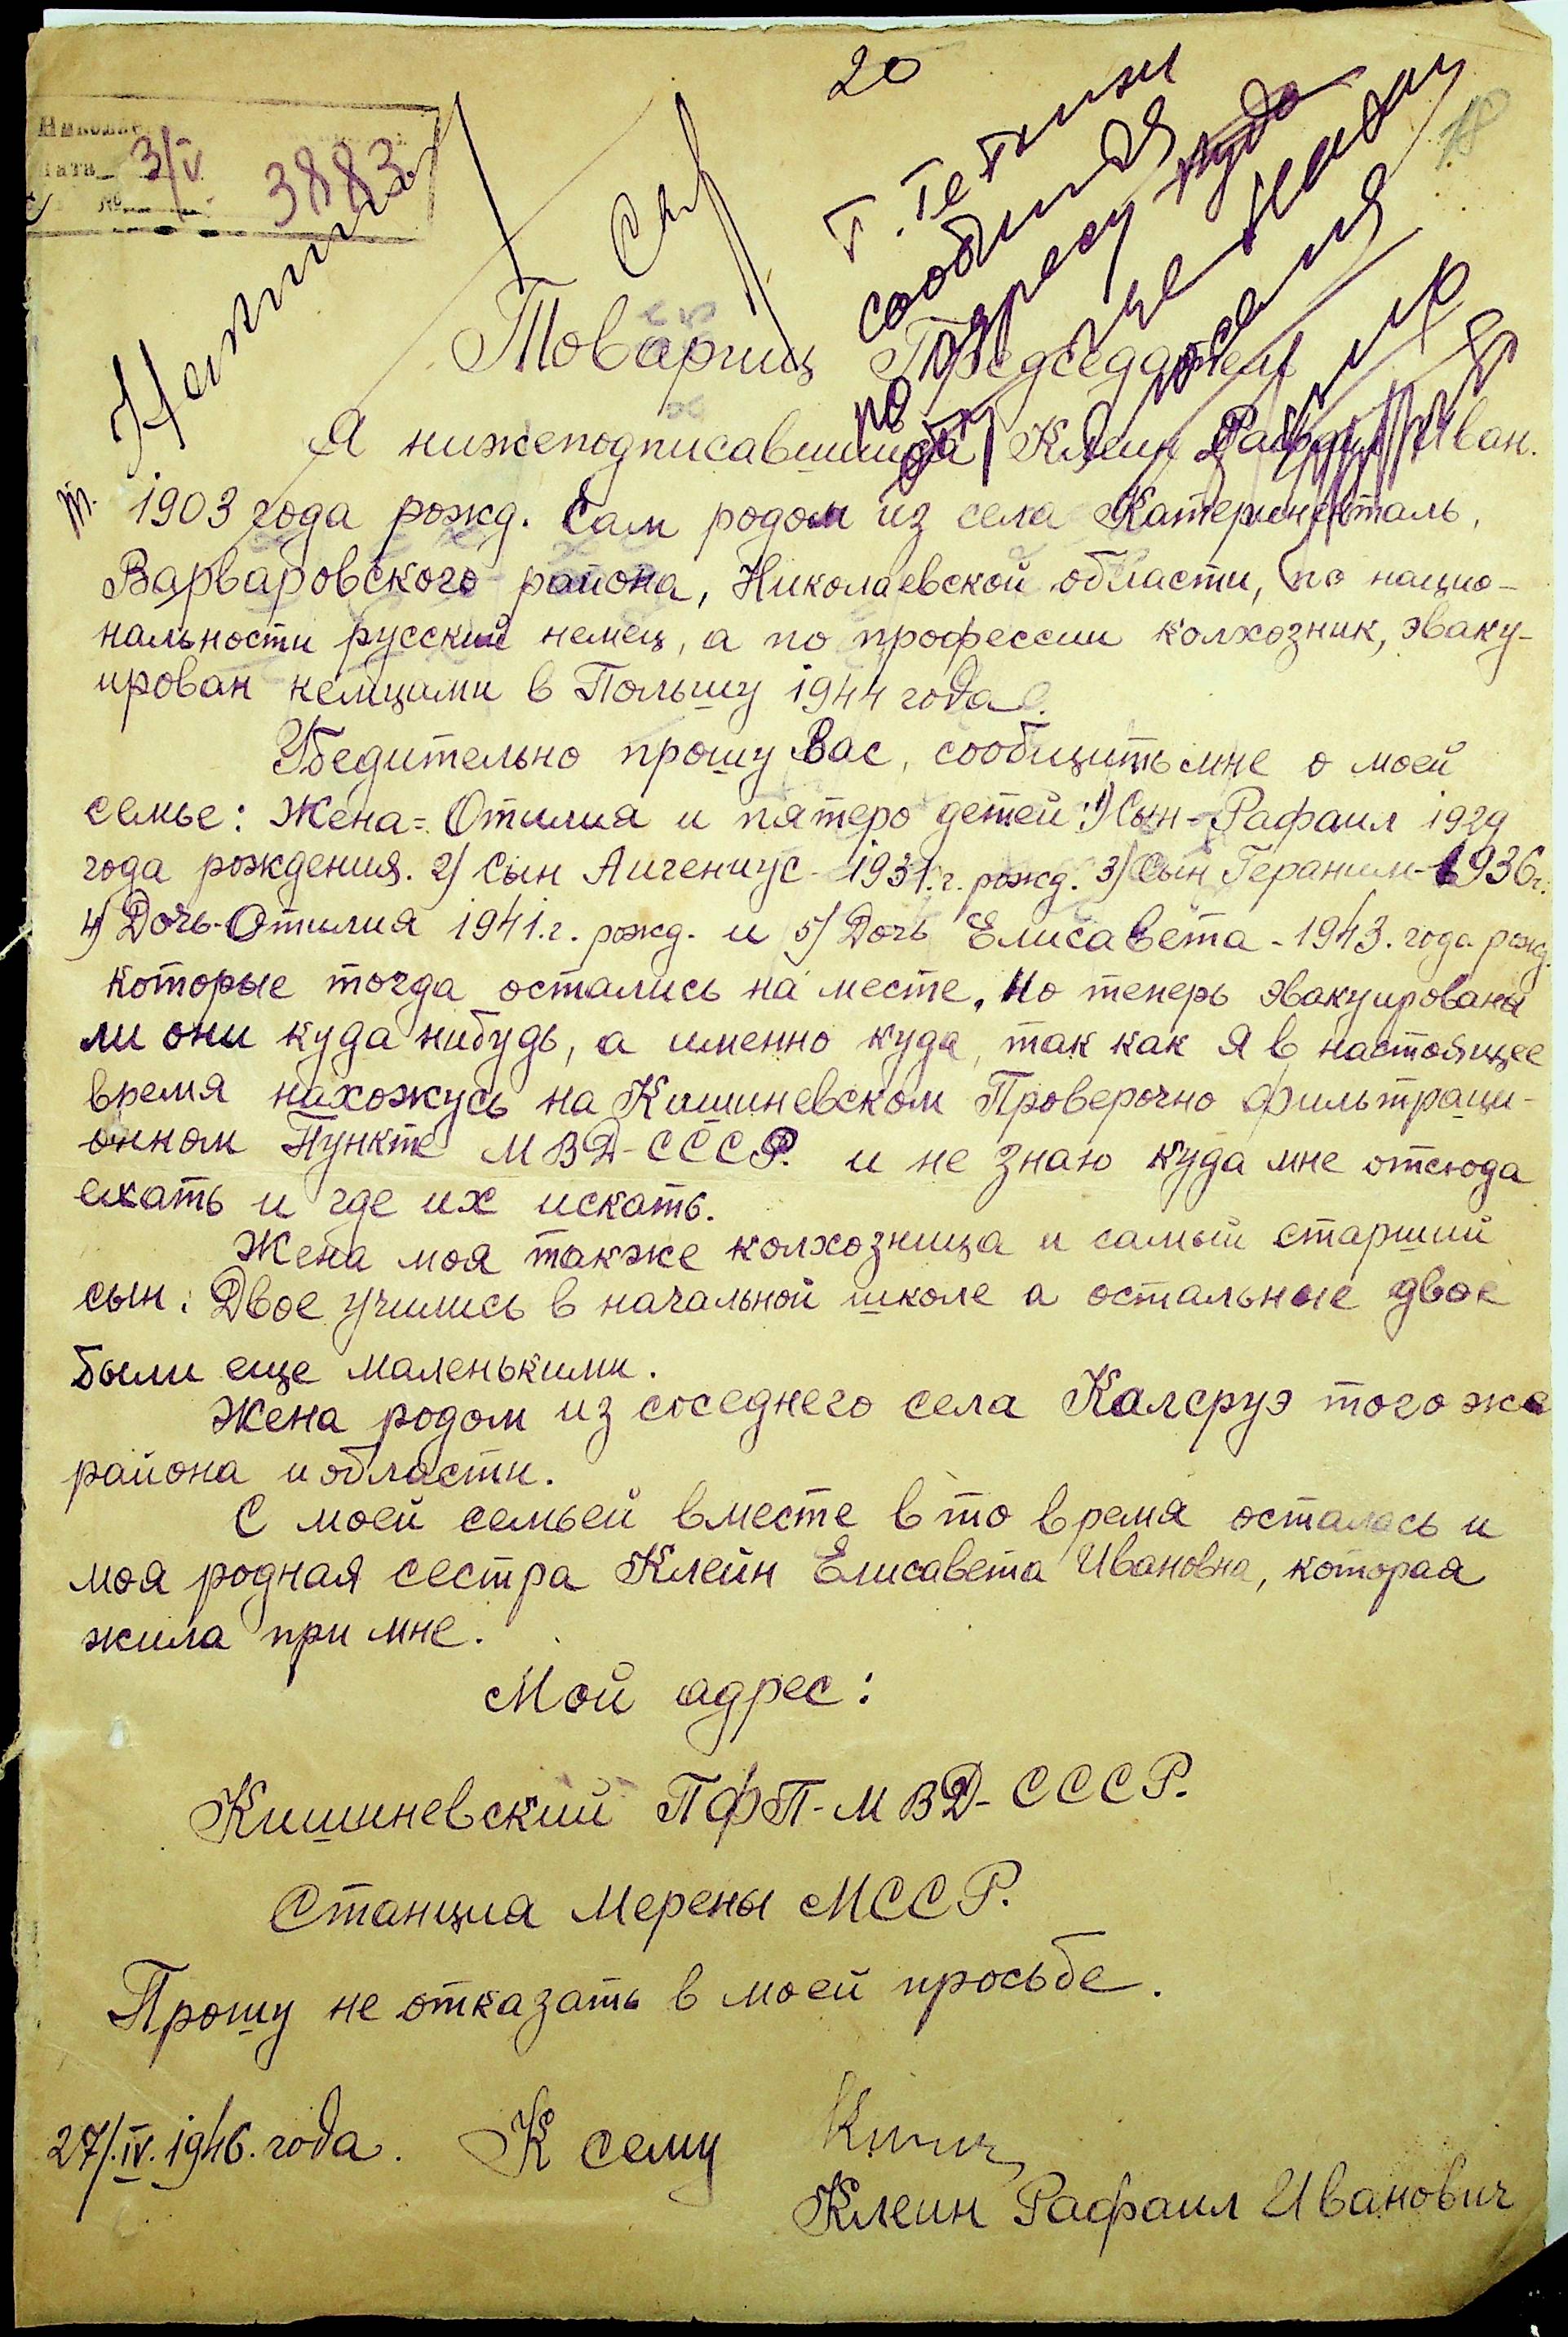 20
3/V 3883
Товарищ Председатель
Я нижеподписавшийся Клеин Рафаил Иван.
1903 года рожд. Сам родом из села Катериненталь,
Варваровского района, Николаевской области, по нацио-
нальности русский немец, а по профессии колхозник, эваку-
ирован немцами в Польшу 1944 года.
Убедительно прошу Вас, сообщить мне о моей
семье: Жена = Отилия и пятеро детей: 1) Сын - Рафаил 1929
года рождения. 2) Сын Аигениус - 1931. г. рожд. 3) Сын Гераним - 1936 г.
4) Дочь - Отилия 1941. г. рожд. и 5) Дочь Елисавета - 1943. года рожд.
которые тогда остались на месте. Но теперь эвакуированы
ли они куда нибудь, а именно куда, так как я в настоящее
время нахожусь на Кишиневском Проверочно фильтраци-
онном Пункте МВД - СССР. и не знаю куда мне отсюда
ехать и где их искать.
Жена моя также колхозница и самый старший
сын. Двое учились в начальной школе а остальные двое
были еще маленькими.
Жена родом из соседнего села Калсруэ того же
района и области.
С моей семьей вместе в то время осталась и
моя родная сестра Клейн Елисавета Ивановна, которая
жила при мне.
Мой адрес:
Кишиневский ПФП - МВД - СССР.
Станция Мерены МССР.
Прошу не отказать в моей просьбе.
27/.IV. 1946. года. К сему
Клеин Рафаил Иванович